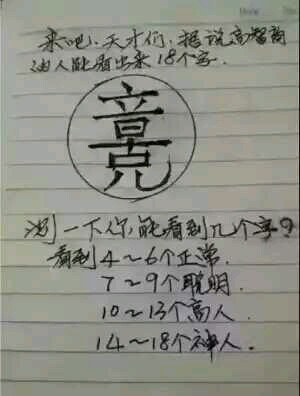 来吧、天才们，据说高智商
的人能看出来18个字.
竟
测一下你,能看到几个字?
看到4～6个正常.
7～9个聪明.
10～13个高人.
14～18个神人.